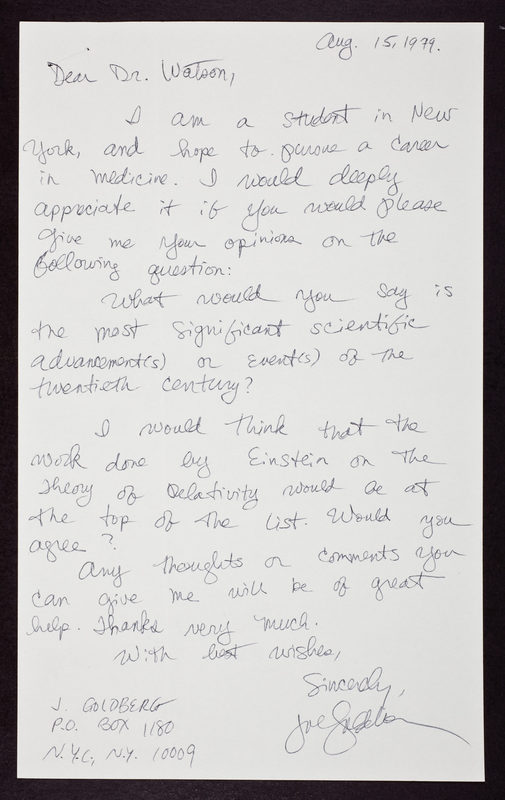 Aug. 15, 1979.
Dear Dr. Watson,
I am a student in New
York, and hope to pursue a career
in medicine. I would deeply
appreciate it if you would please
give me your opinions on the
following question:
What would you say is
the most significant scientific
advancement(s) or event(s) of the
twentieth century?
I would think that the
work done by Einstein on the
Theory of Relativity would be at
the top of the list. Would you
agree?
Any thoughts or comments you
can give me will be of great
help. Thanks very much.
With best wishes,
Sincerely,
Joe Goldberg
J. GOLDBERG
P.O. BOX 1180
N.Y.C., N.Y. 10009